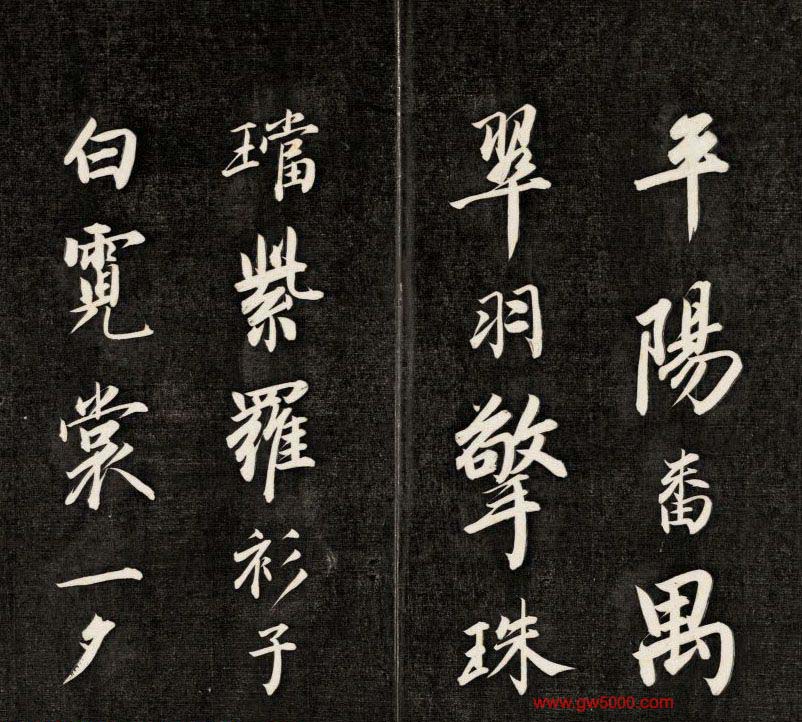 平陽番禺
翠羽擎珠
璫紫羅衫子
白霓裳一夕
www.gw5000.com